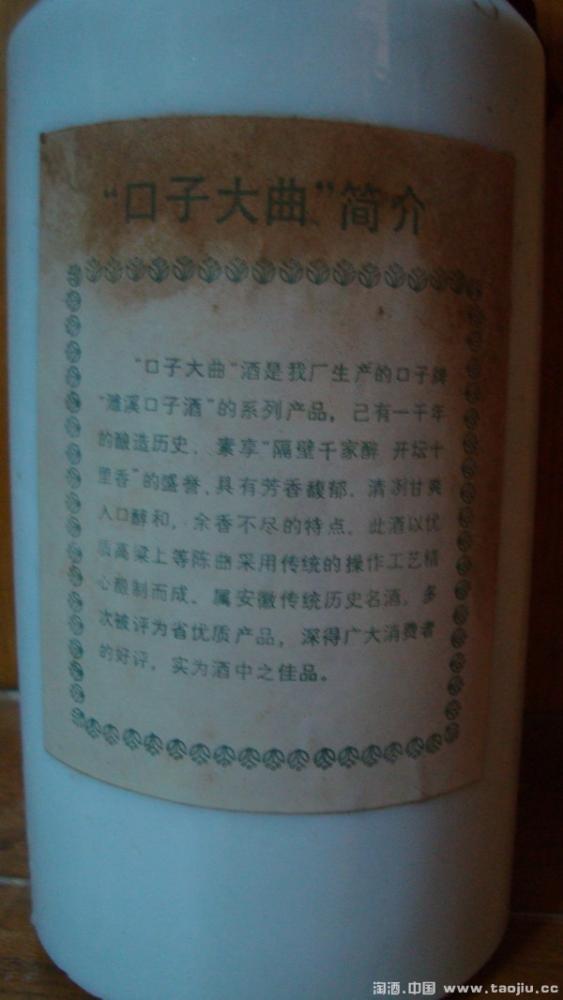 “口子大曲”简介
“口子大曲”酒是我厂生产的口子牌
“濉溪口子酒”的系列产品，已有一千年
的酿造历史，素享“隔壁千家醉 开坛十
里香”的盛誉，具有芳香馥郁，清冽甘爽
入口醇和，余香不尽的特点，此酒以优
质高粱上等陈曲采用传统的操作工艺精
心酿制而成。属安徽传统历史名酒，多
次被评为省优质产品，深得广大消费者
的好评，实为酒中之佳品。
淘酒.中国 www.taojiu.cc